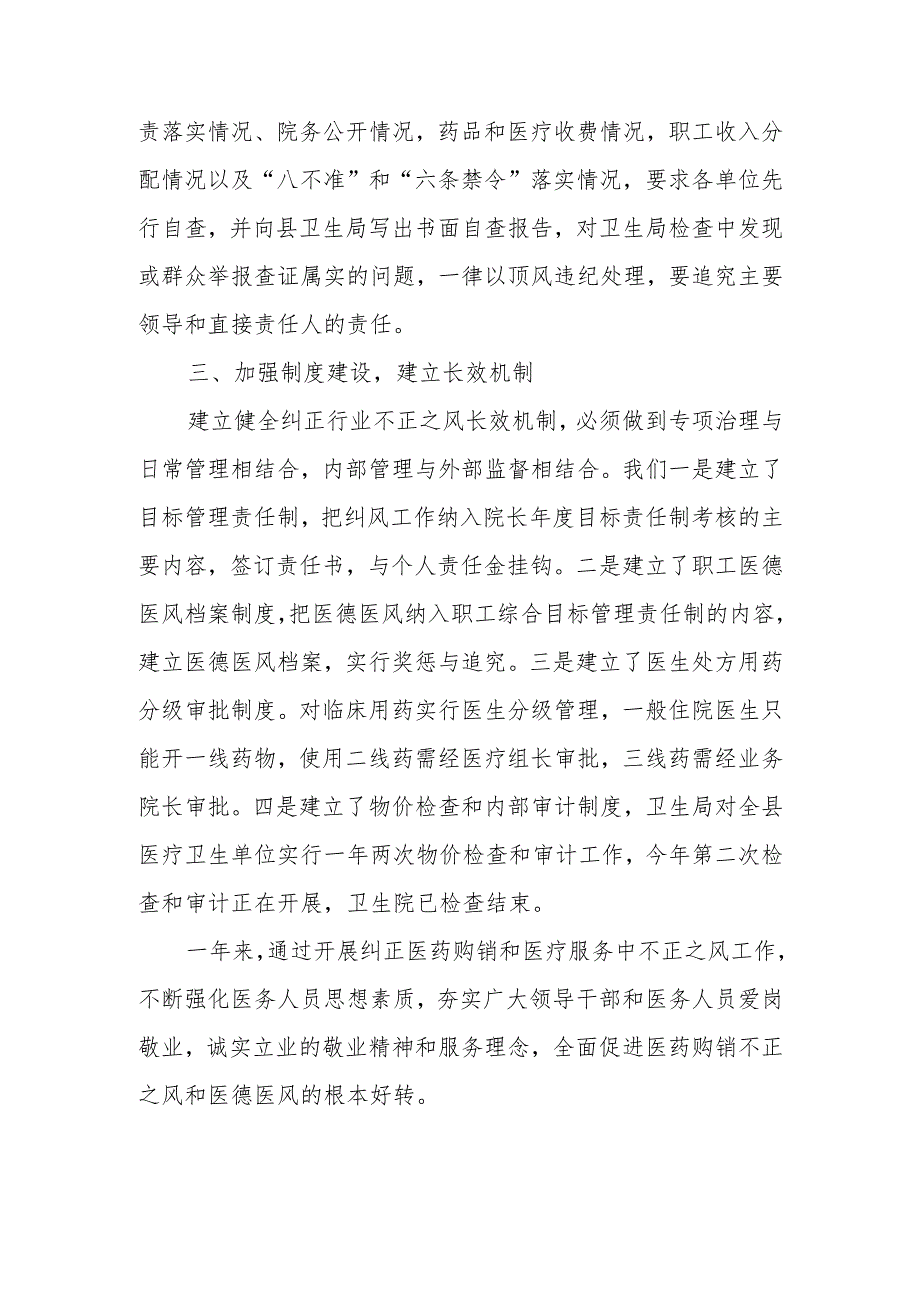 责落实情况、院务公开情况，药品和医疗收费情况，职工收入分
配情况以及“八不准”和“六条禁令”落实情况，要求各单位先
行自查，并向县卫生局写出书面自查报告，对卫生局检查中发现
或群众举报查证属实的问题，一律以顶风违纪处理，要追究主要
领导和直接责任人的责任。
三、加强制度建设，建立长效机制
建立健全纠正行业不正之风长效机制，必须做到专项治理与
日常管理相结合，内部管理与外部监督相结合。我们一是建立了
目标管理责任制，把纠风工作纳入院长年度目标责任制考核的主
要内容，签订责任书，与个人责任金挂钩。二是建立了职工医德
医风档案制度，把医德医风纳入职工综合目标管理责任制的内容，
建立医德医风档案，实行奖惩与追究。三是建立了医生处方用药
分级审批制度。对临床用药实行医生分级管理，一般住院医生只
能开一线药物，使用二线药需经医疗组长审批，三线药需经业务
院长审批。四是建立了物价检查和内部审计制度，卫生局对全县
医疗卫生单位实行一年两次物价检查和审计工作，今年第二次检
查和审计正在开展，卫生院已检查结束。
一年来，通过开展纠正医药购销和医疗服务中不正之风工作，
不断强化医务人员思想素质，夯实广大领导干部和医务人员爱岗
敬业，诚实立业的敬业精神和服务理念，全面促进医药购销不正
之风和医德医风的根本好转。